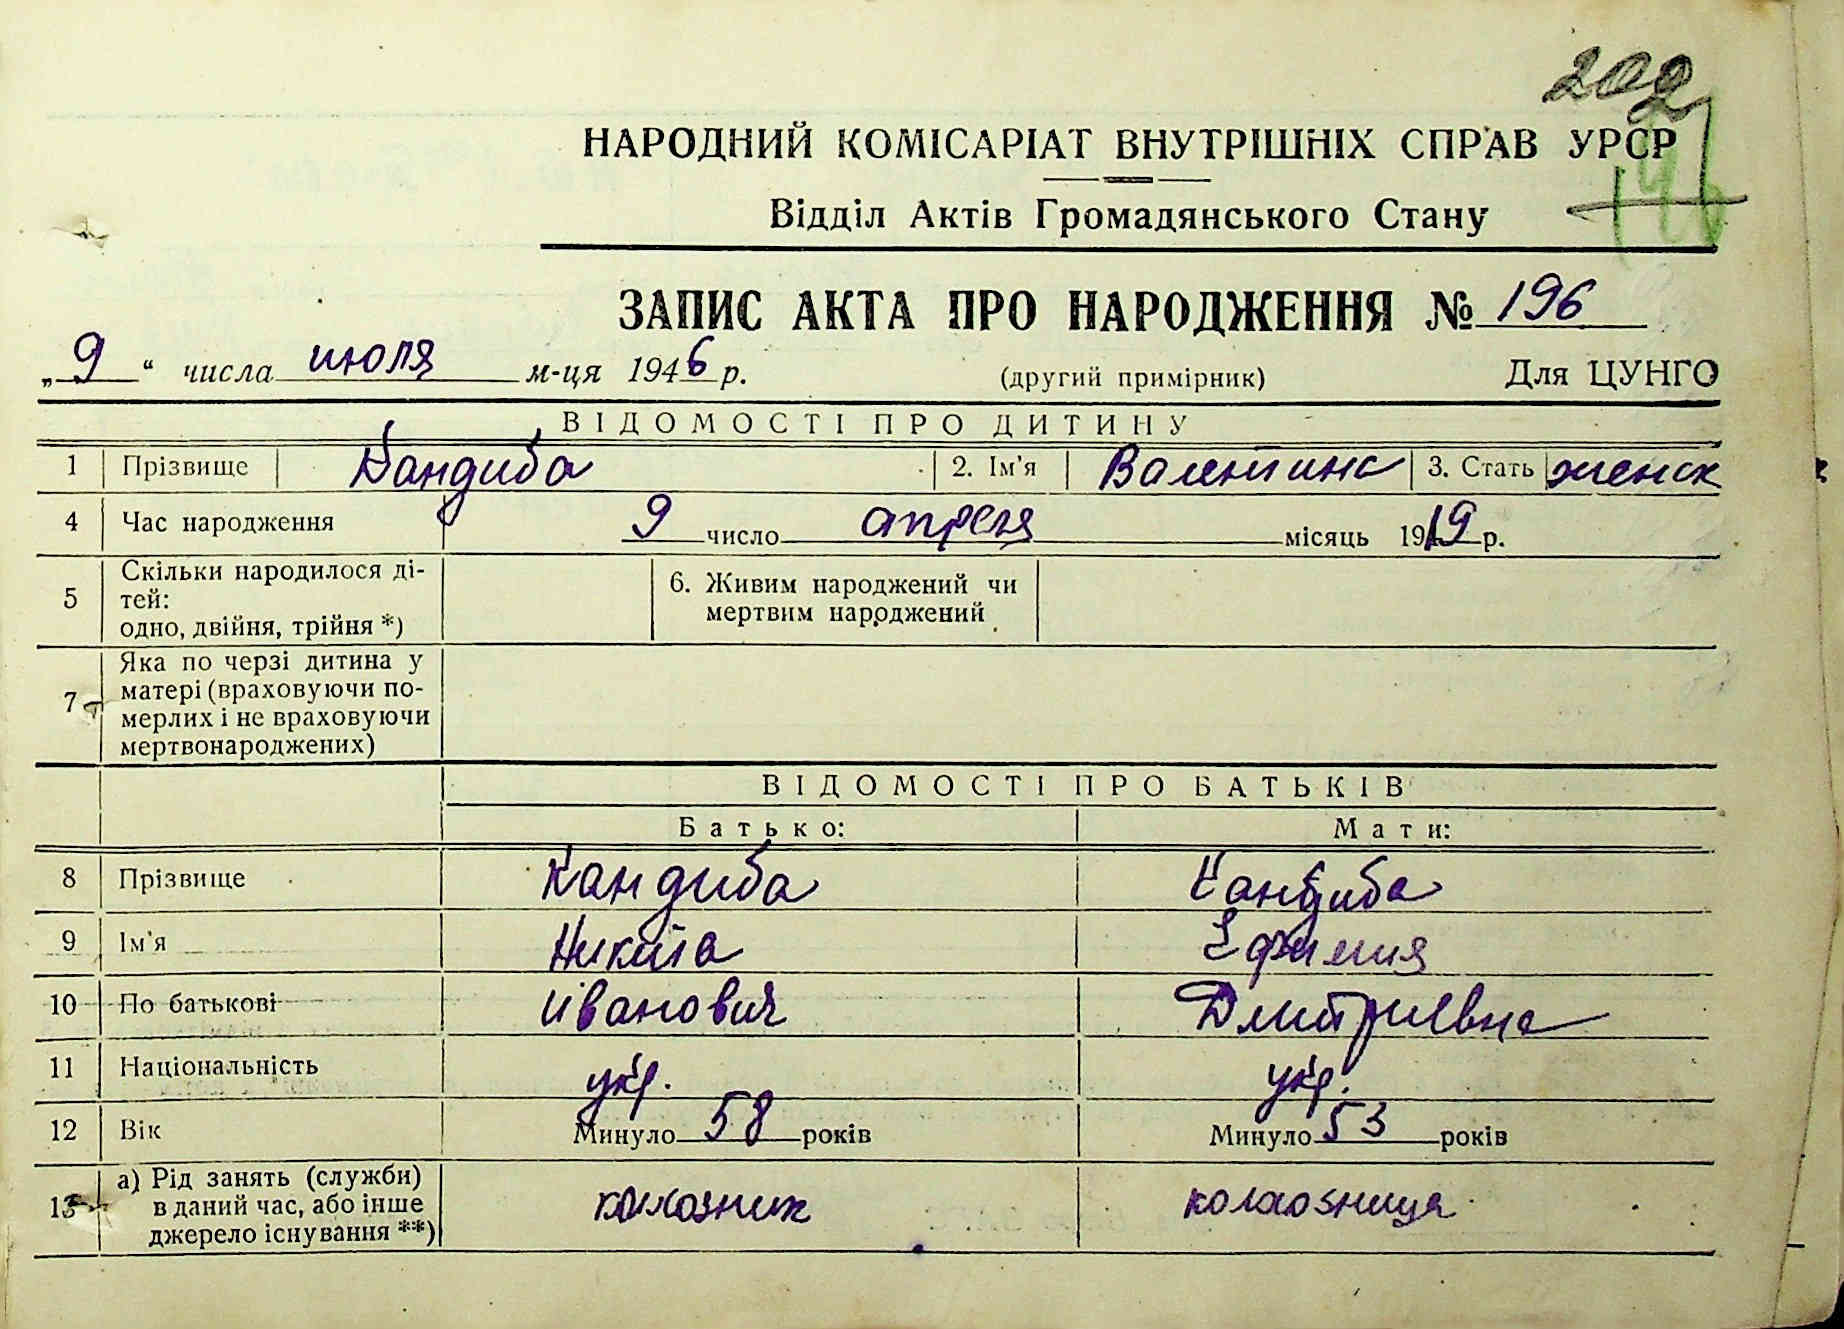 202
НАРОДНИЙ КОМІСАРІАТ ВНУТРІШНІХ СПРАВ УРСР
Відділ Актів Громадянського Стану
ЗАПИС АКТА ПРО НАРОДЖЕННЯ № 196
„9“ числа июля м-ця 1946 р. (другий примірник) Для ЦУНГО
ВІДОМОСТІ ПРО ДИТИНУ
1 Прізвище Кандиба 2. Ім'я Валентина 3. Стать женск
4 Час народження 9 число апреля місяць 1919 р.
5 Скільки народилося ді-
тей:
одно, двійня, трійня *)
6. Живим народжений чи
мертвим народжений
7 Яка по черзі дитина у
матері (враховуючи по-
мерлих і не враховуючи
мертвонароджених)
ВІДОМОСТІ ПРО БАТЬКІВ
Батько: Мати:
8 Прізвище Кандиба Кандиба
9 Ім'я Никита Ефимия
10 По батькові Иванович Дмитриевна
11 Національність укр. укр.
12 Вік Минуло 58 років Минуло 53 років
13 а) Рід занять (служби)
в даний час, або інше
джерело існування **)
колхозник колхозница